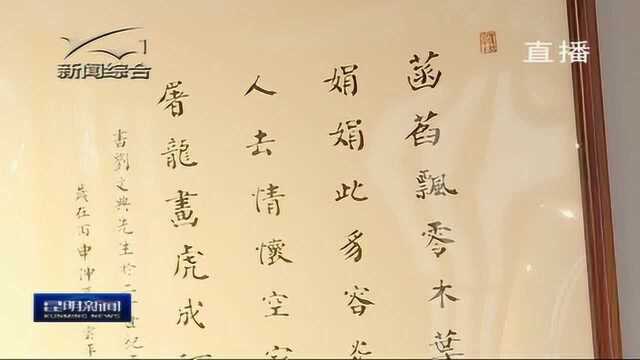 新闻综合
直播
菡萏飄零木葉
娟娟此豸容
人去情懷空
屠龍畫虎成
書劉文典先生
歲在丙申
昆明新闻
KUNMING NEWS